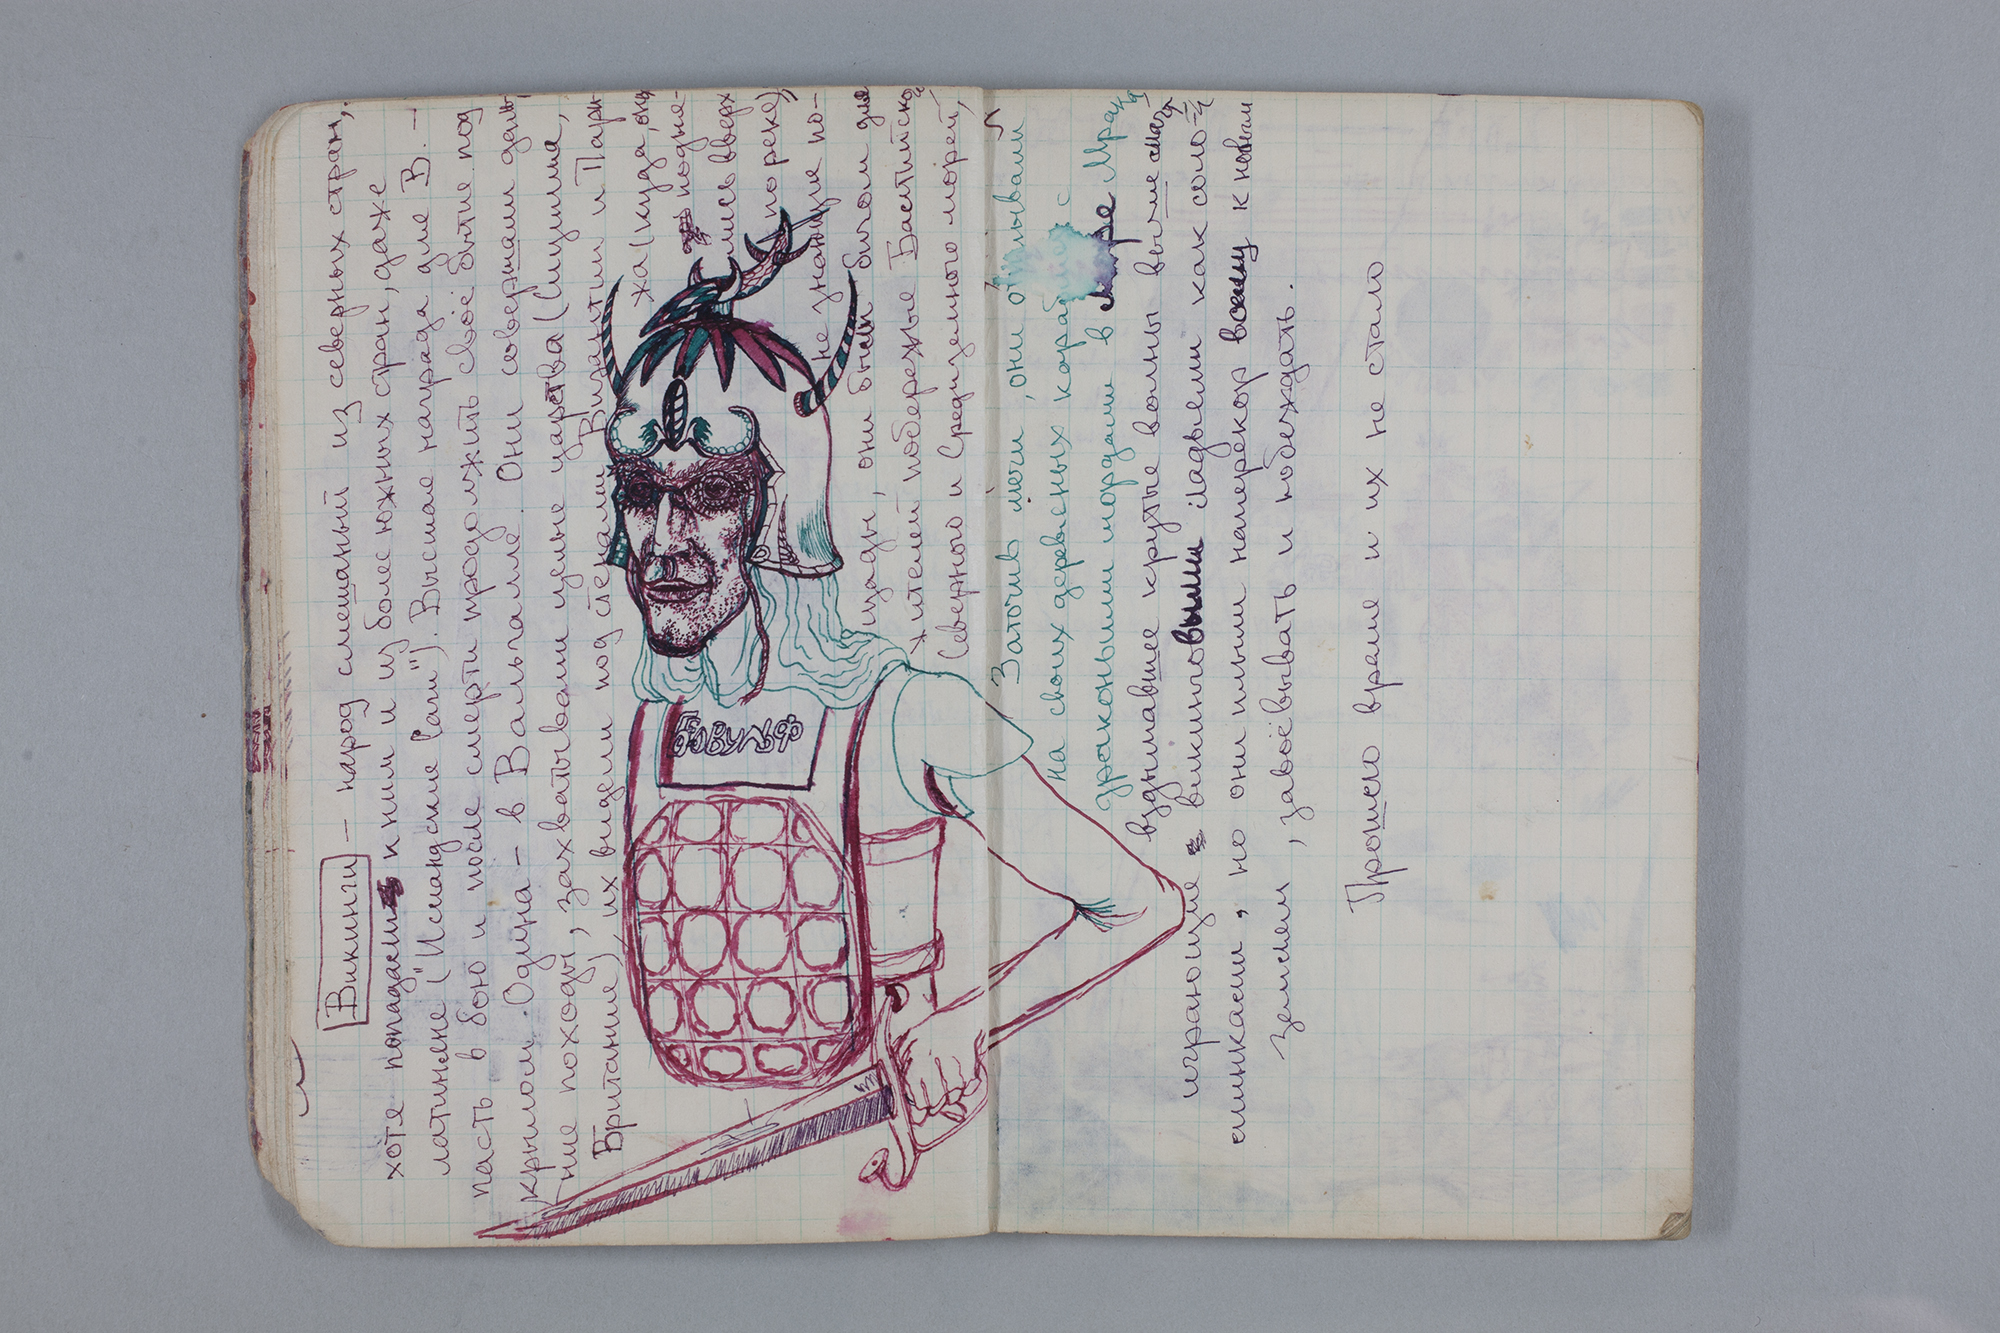 Викинги – народ смешаный из северных стран,
хотя попадались к ним и из более южных стран, даже
латиняне ("Исландские саги"). Высшая награда для В. –
пасть в бою и после смерти продолжить своё бытие под
крылом Одина – в Вальгалле. Они совершали даль
ние походы, захватывали целые царства (Сицилия,
Британия), их видели под стенами Византии и Пари
жа (куда, они
подня-
лись вверх
по реке),
не знающие по-
щады, они были бичом для
жителей побережья Балтийско
Северного и Средиземного морей,
БЕОВУЛЬФ
Заточив мечи, они отплывали
на своих деревянных кораблях с
драконьими мордами в море Мрака
вздымавшие крутые волны выше
играющие викинговыми ладьями как соло
минками, но они плыли наперекор всему к новым
землям, завоёвывать и побеждать.
Прошло время и их не стало